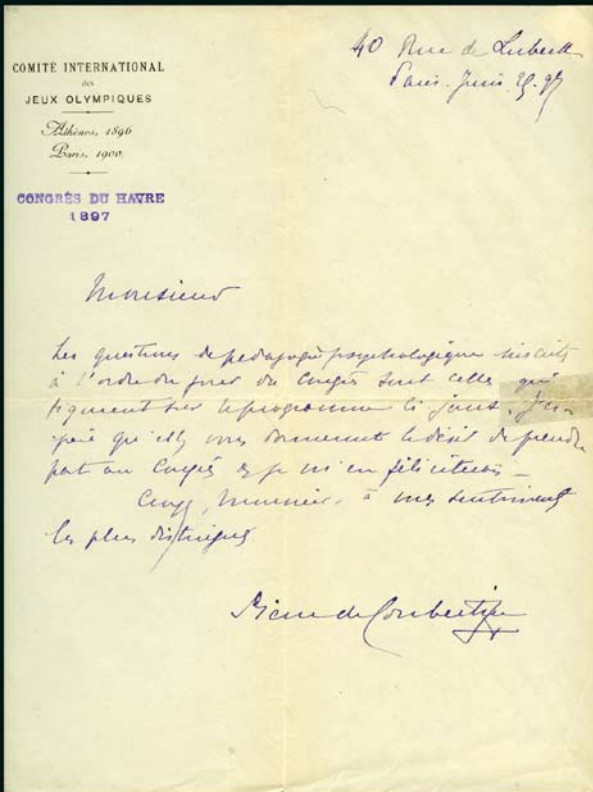 40 Rue de Lubeck
Paris. Juin 29. 97
COMITÉ INTERNATIONAL
des
JEUX OLYMPIQUES
Athènes, 1896
Paris, 1900.
CONGRÈS DU HAVRE
1897
Monsieur
Les questions de pédagogie psychologique inscrites
à l'ordre du jour du Congrès sont celles qui
figurent sur le programme ci joint. J'es-
père qu'elles vous donneront le désir de prendre
part au Congrès et je m'en féliciterais
Croyez, Monsieur, à mes sentiments
les plus distingués
Pierre de Coubertin